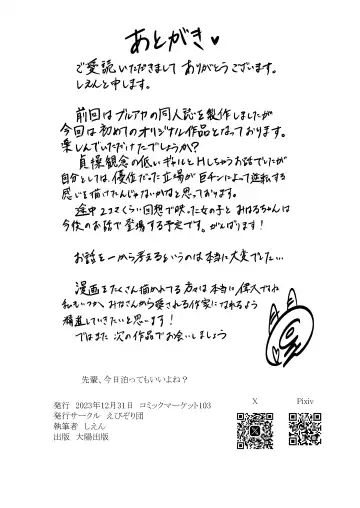 あとがき♥
ご愛読いただきましてありがとうございます。
しえんと申します。
前回はブルアカの同人誌を製作しましたが
今回は初めてのオリジナル作品となっております。
楽しんでいただけたでしょうか?
貞操観念の低いギャルとHしちゃうお話でしたが
自分としては、優位だった立場が巨キンによって逆転する
感じを描けたんじゃないかなと思っております。
途中2コマくらい回想で映った女の子と みはるちゃんは
今後のお話で登場する予定です。がんばります!
お話を一から考えるというのは本当に大変でした…
漫画をたくさん描かれてる方々は本当に偉大ですね
私もいつか、みなさんから愛される作家になれるよう
精進していきたいと思います!
ではまた 次の作品でお会いしましょう
先輩、今日泊ってもいいよね?
発行 2023年12月31日 コミックマーケット103
発行サークル えびぞり団
執筆者 しえん
出版 大陽出版
X
Pixiv